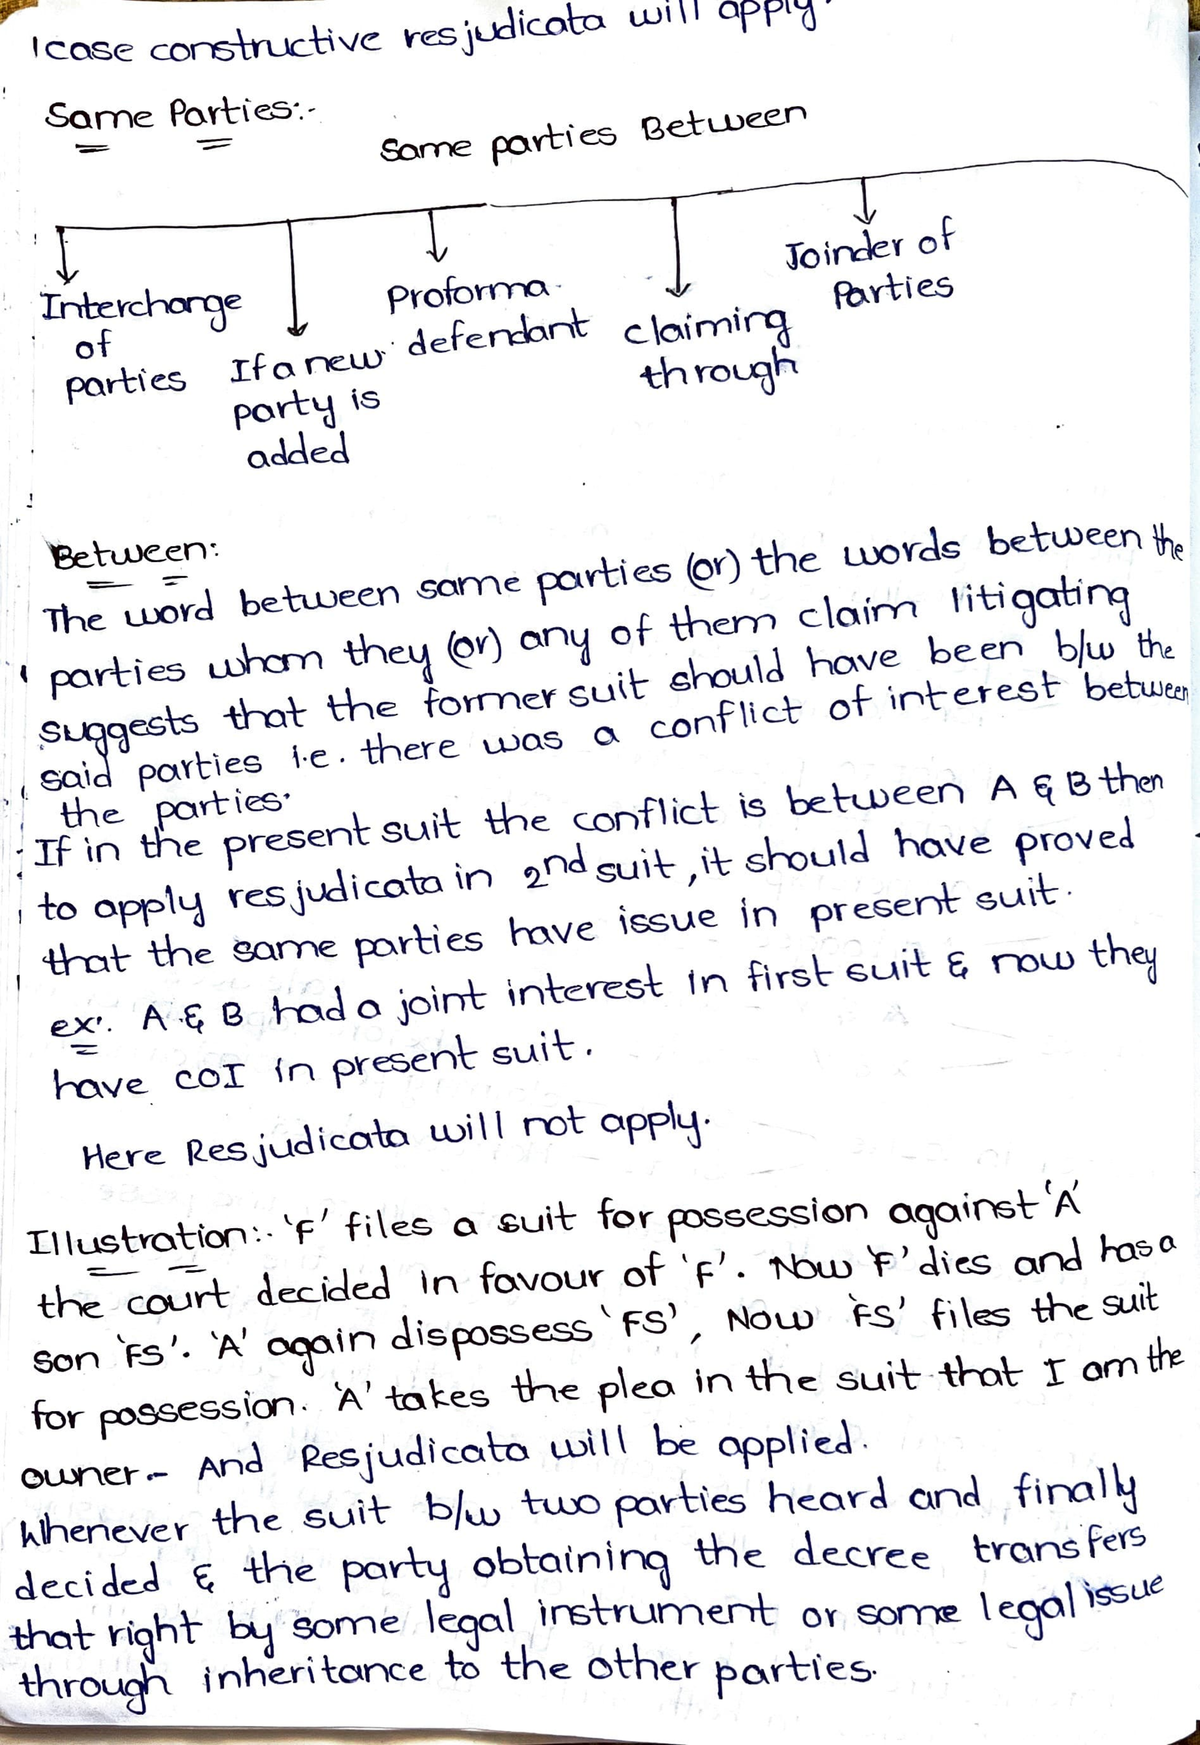 1case constructive resjudicata will apply.
Same Parties:-
Same parties Between
Interchange
of
parties
If a new
party is
added
Proforma
defendant
claiming
through
Joinder of
Parties
Between:
The word between same parties (or) the words between the
parties whom they (or) any of them claim litigating
suggests that the former suit should have been b/w the
said parties i.e. there was a conflict of interest between
the parties.
If in the present suit the conflict is between A & B then
to apply resjudicata in 2nd suit, it should have proved
that the same parties have issue in present suit.
ex:. A & B had a joint interest in first suit & now they
have COI in present suit.
Here Resjudicata will not apply.
Illustration:. 'F' files a suit for possession against 'A'
the court decided in favour of 'F'. Now 'F' dies and has a
son 'FS'. 'A' again dispossess 'FS', Now 'FS' files the suit
for possession. 'A' takes the plea in the suit that I am the
owner.- And Resjudicata will be applied.
Whenever the suit b/w two parties heard and finally
decided & the party obtaining the decree transfers
that right by some legal instrument or some legal issue
through inheritance to the other parties.